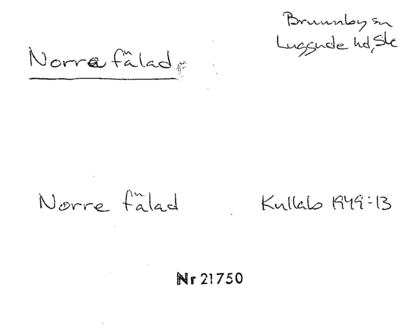 Brunnby sn
Luggude hd, Sk
Norra fälad
Norre fälad
Kullabo 1949:13
Nr 21750